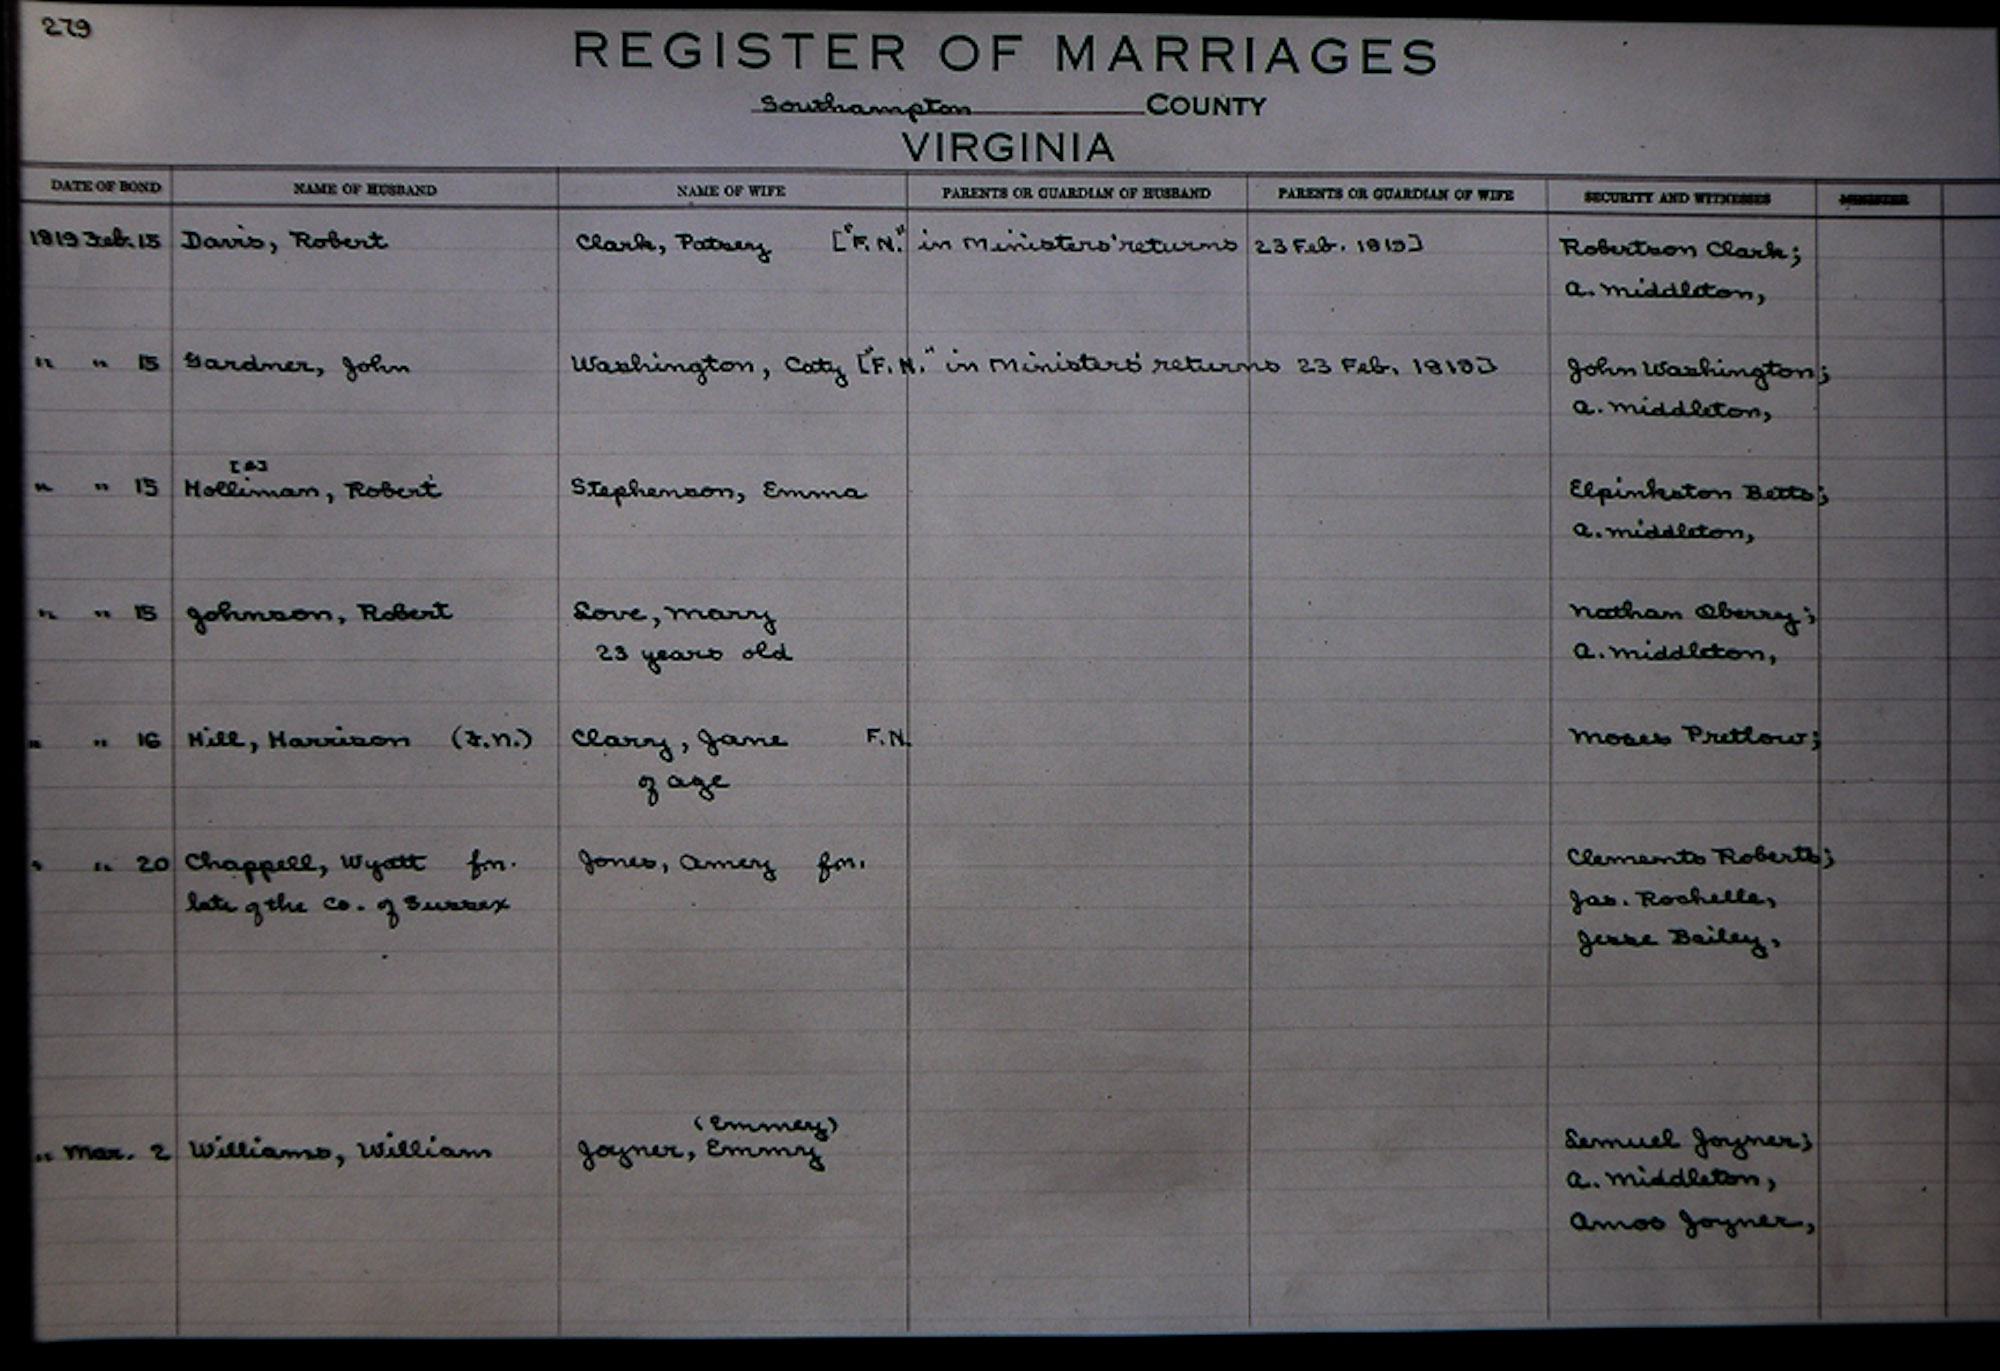 279
REGISTER OF MARRIAGES
Southampton COUNTY
VIRGINIA
DATE OF BOND NAME OF HUSBAND NAME OF WIFE PARENTS OR GUARDIAN OF HUSBAND PARENTS OR GUARDIAN OF WIFE SECURITY AND WITNESSES MINISTER
1819 Feb. 15 Davis, Robert Clark, Patsey ["F.N." in Ministers' returns 23 Feb. 1819] Robertson Clark;
A. Middleton,
" " 15 Gardner, John Washington, Caty ["F.N." in Ministers' returns 23 Feb. 1819] John Washington;
A. Middleton,
[a]
" " 15 Holliman, Robert Stephenson, Emma Elpinkston Betts;
A. Middleton,
" " 15 Johnson, Robert Love, Mary Nathan Oberry;
23 years old A. Middleton,
" " 16 Hill, Harrison (F.N.) Clary, Jane F.N. Moses Pretlow;
of age
" " 20 Chappell, Wyatt fn. Jones, Amey fn. Clements Roberts;
late of the Co. of Sussex Jas. Rochelle,
Jesse Bailey,
(Emmey)
" Mar. 2 Williams, William Joyner, Emmy Semuel Joyner;
A. Middleton,
Amos Joyner,